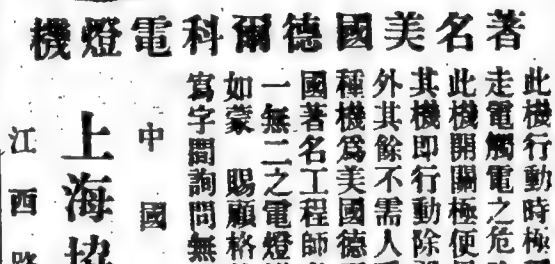 著名美國德爾科電燈機
此機行動時極
走電觸電之危
此機開關極便
其機即行動除
外其餘不需人
種機爲美國德
國著名工程師
一無二之電燈
如蒙 賜顧格
寫字間詢問無
中國
上海協
江西路